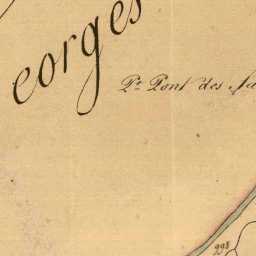 eorges
Pt Pont des
998